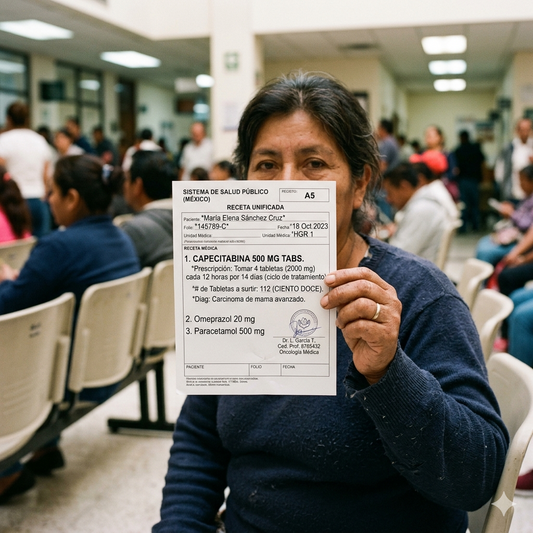 SISTEMA DE SALUD PÚBLICO
(MÉXICO)
A5
RECETA UNIFICADA
Paciente *María Elena Sánchez Cruz*
Folio *145789-C*
Fecha *18 Oct 2023
Unidad Médica
Unidad Médica *HGR 1
RECETA MÉDICA
1. CAPECITABINA 500 MG TABS.
*Prescripción: Tomar 4 tabletas (2000 mg)
cada 12 horas por 14 días (ciclo de tratamiento).
*# de Tabletas a surtir: 112 (CIENTO DOCE).
*Diag: Carcinoma de mama avanzado.
2. Omeprazol 20 mg
3. Paracetamol 500 mg
Dr. L. García T.
Ced. Prof. 8765432
Oncología Médica
PACIENTE
FOLIO
FECHA